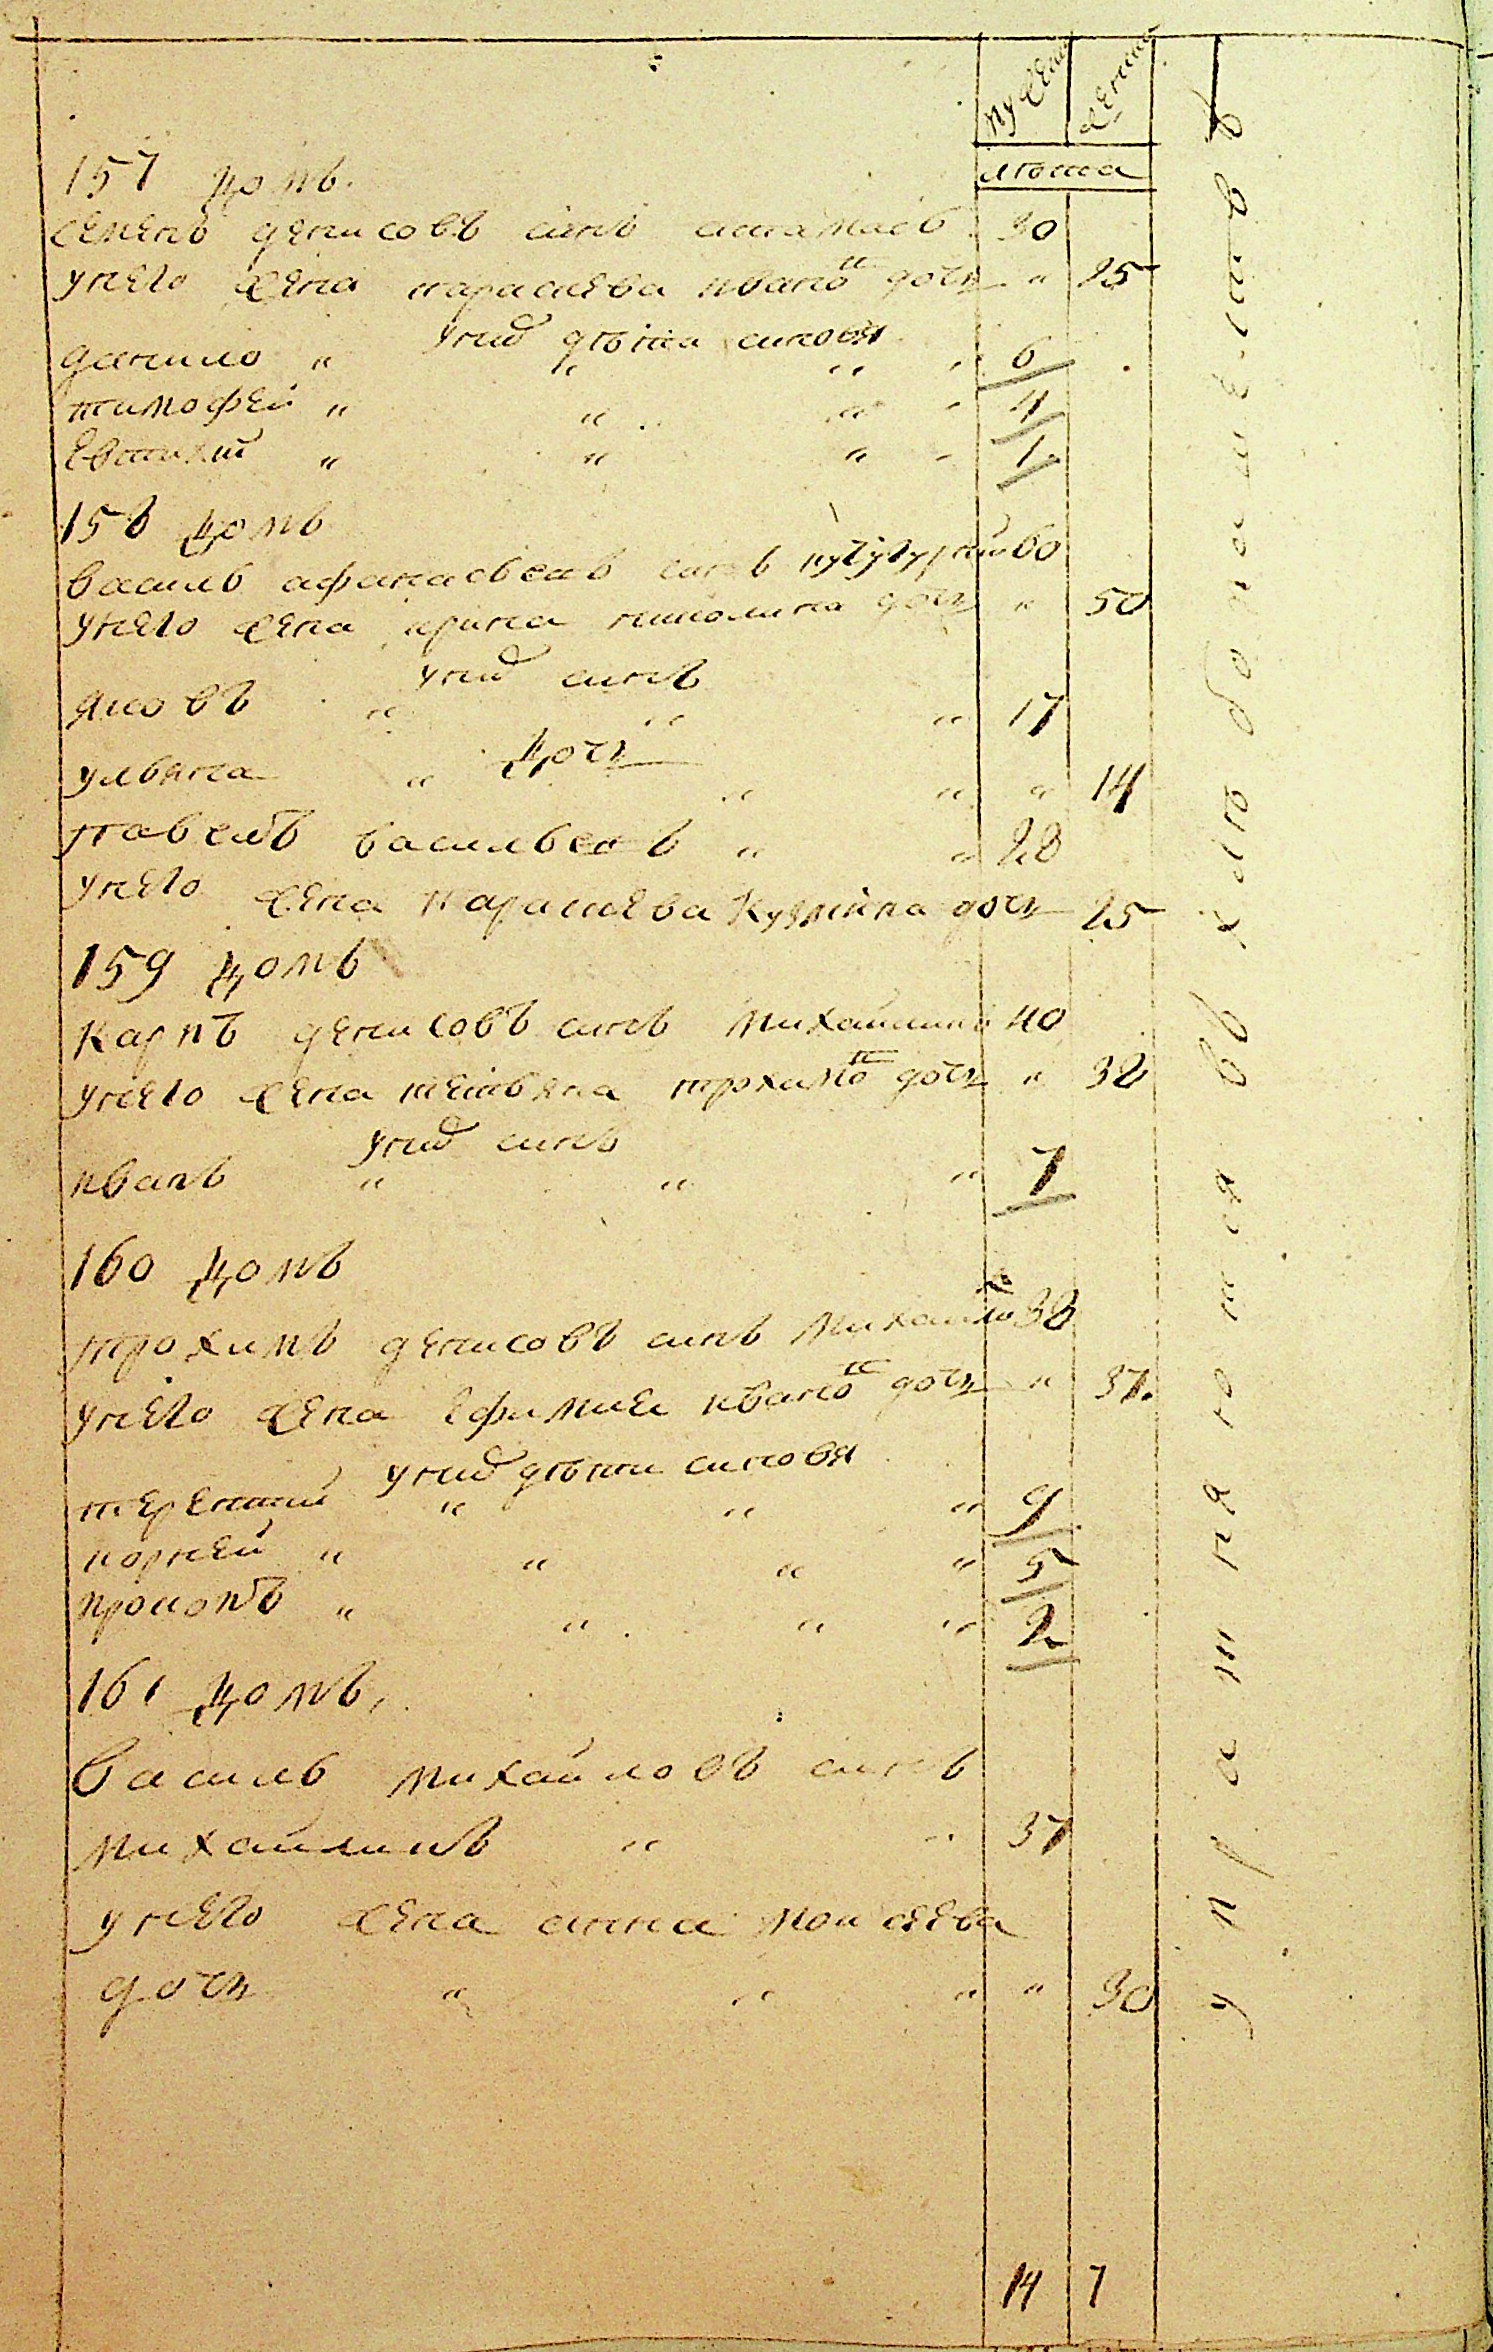 мужеска женска
лѣта
157 домъ.
семенъ денисовъ синъ 30
унего жена параскева ивано дочь " 25
унихъ дѣти синовя
данило " " " " 6
тимофей " " " " 4
Евтихий " " " " 1
158 домъ
василь афанасьевъ синъ 60
унего жена ирина николина дочь " 50
унихъ синъ
яковъ " " " 17
дочь
ульяна " " " " 14
павелъ васильевъ " " 28
унего жена параскева Кузмина дочь 25
159 домъ
карпъ денисовъ синъ михайлинъ 40
унего жена тетьяна трохимо дочь " 38
унихъ синъ
иванъ " " " 7
160 домъ
трохимъ денисовъ синъ михайло 38
унего жена Ефимия ивано дочь " 37.
унихъ дѣти синовя
терентий " " " 9
корней " " " " 5
прокопъ " " " " 2
161 домъ,
василь михайловъ синъ
михайлинъ " " 37
унего жена анна моисеева
дочь " " " " 30
14 7